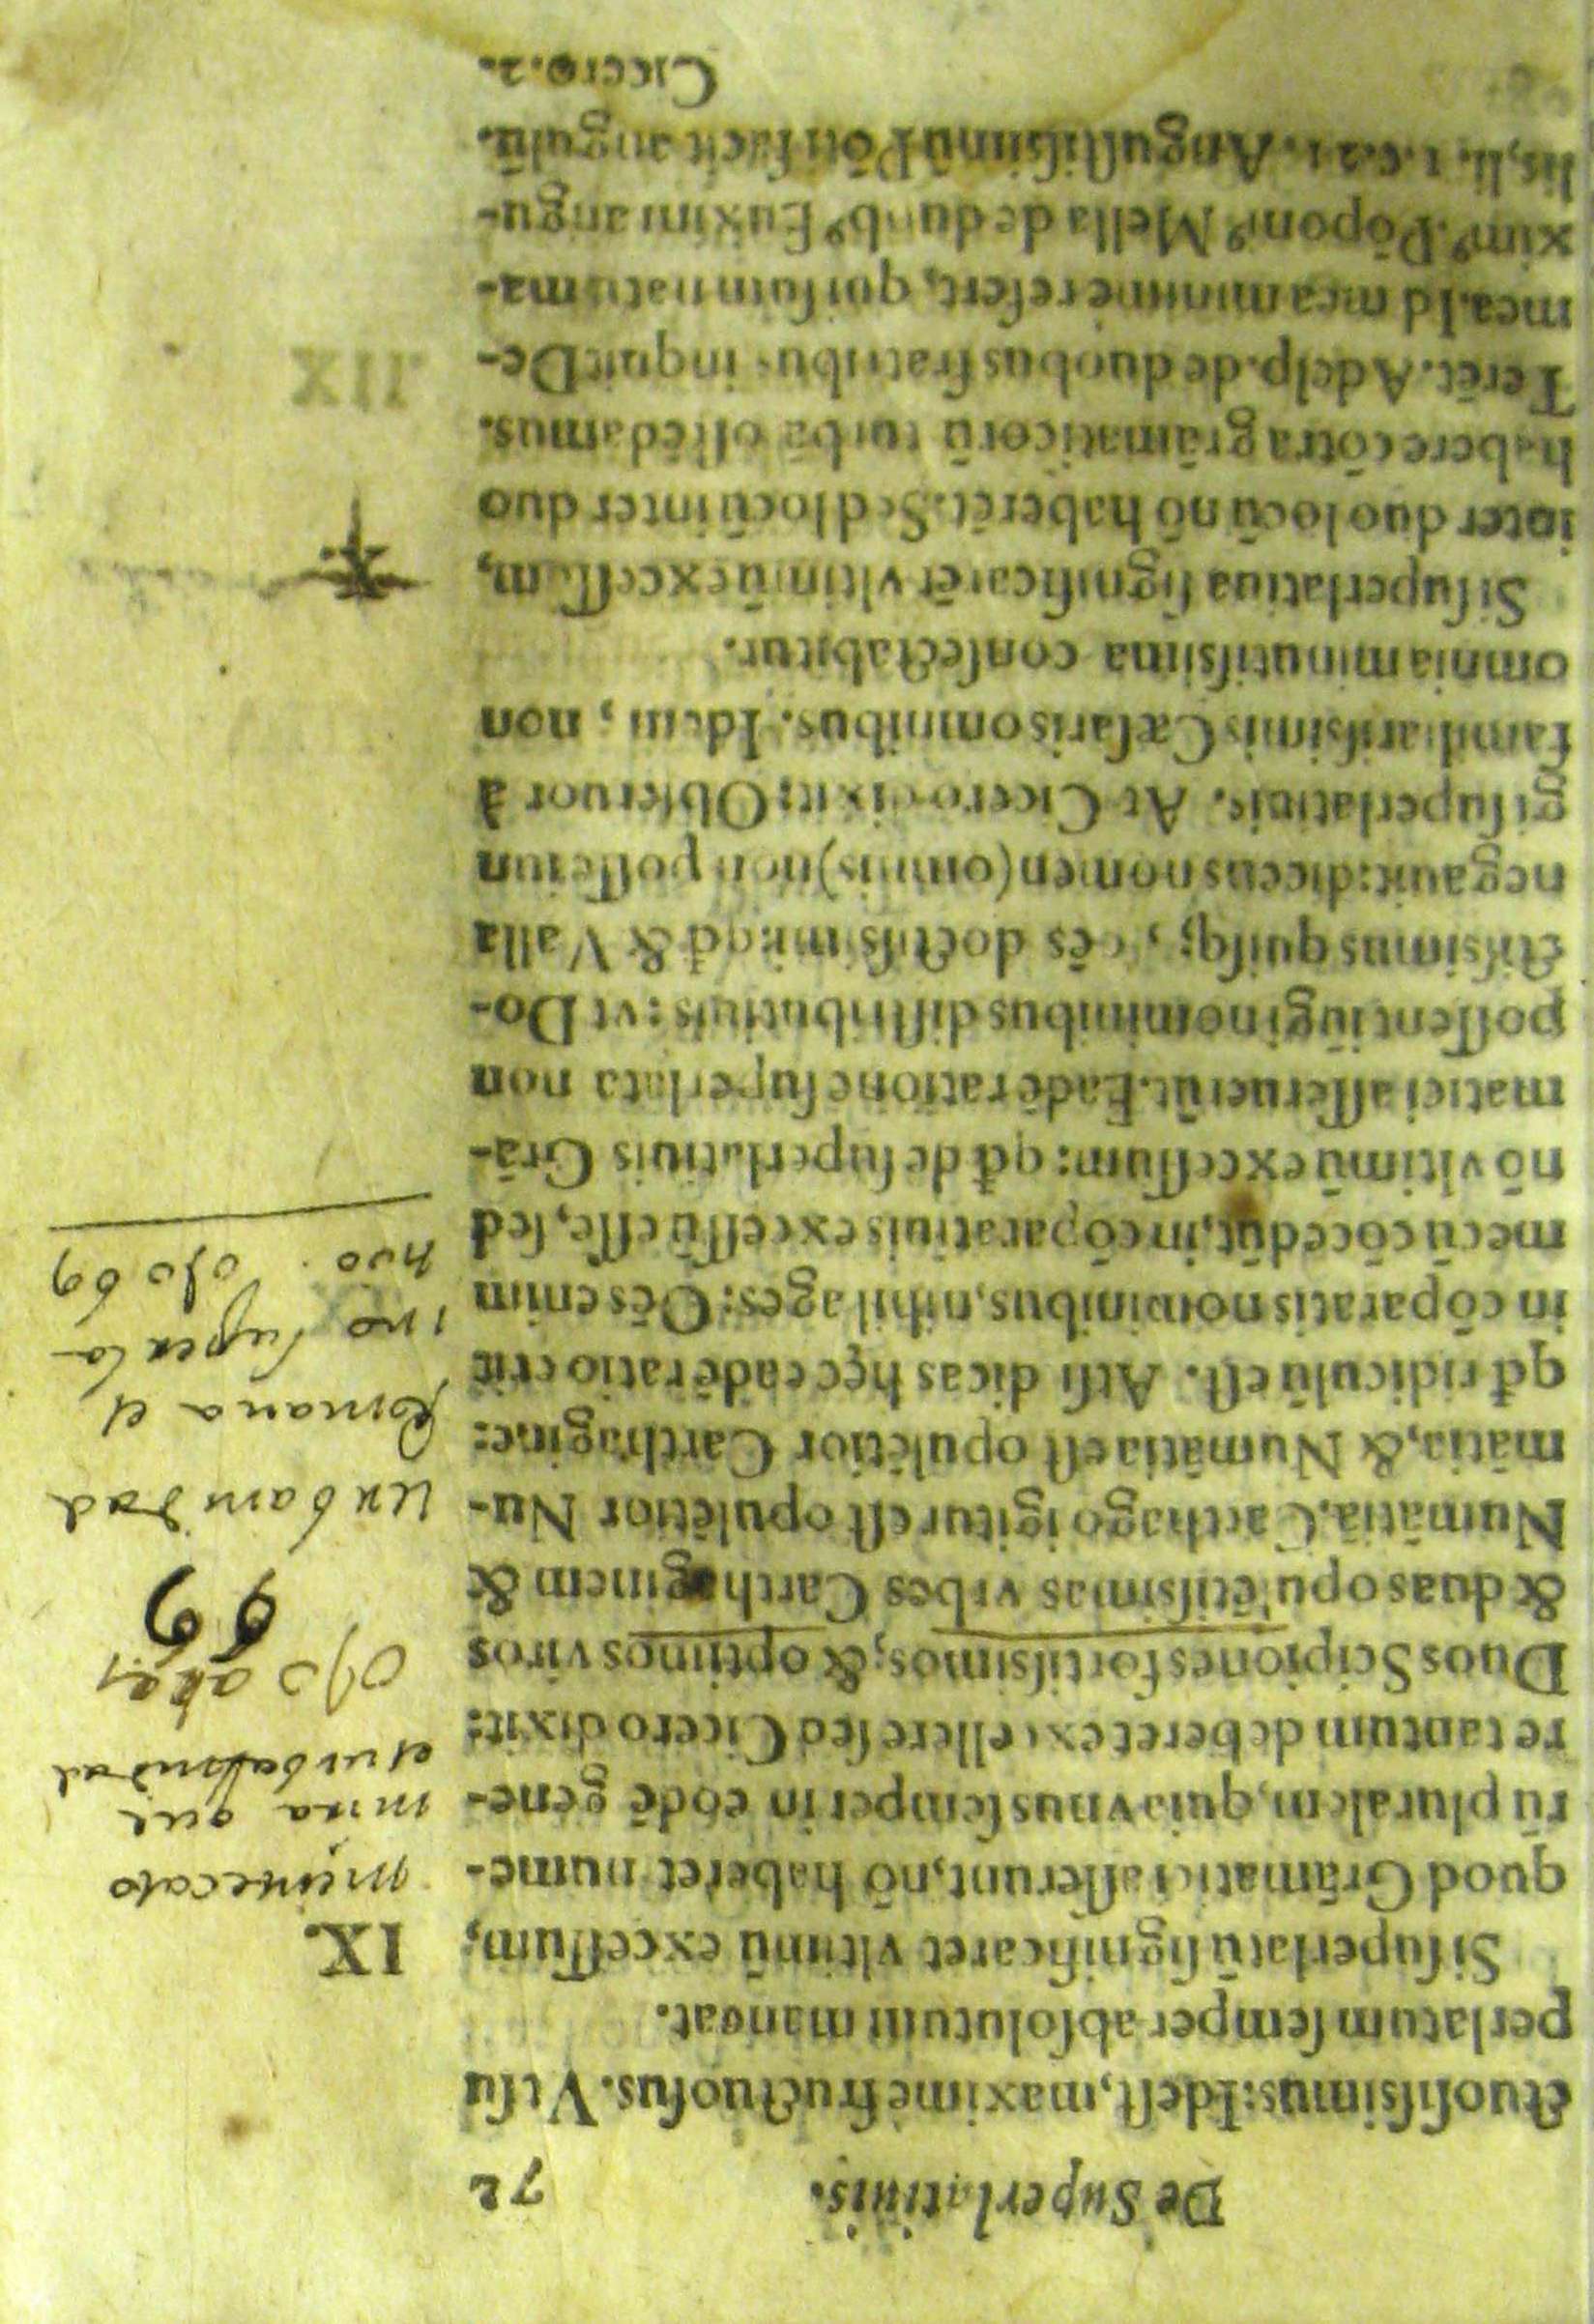 De Superlatiuis. 72
ctuosiſsimus: Ideſt, maximè fructuoſus. Vt ſu
perlatum ſemper abſolutum maneat.
Si ſuperlatū ſignificaret vltimū exceſſum, IX.
quod Grāmatici aſſerunt, nō haberet nume-
rū pluralem, quia vnus ſemper in eodē gene-
re tantum deberet excellere ſed Cicero dixit:
Duos Scipiones fortiſsimos, & optimos viros
& duas opulētiſsimas vrbes Carthaginem &
Numātiā. Carthago igitur eſt opulētior Nu-
mātia, & Numātia eſt opulētior Carthagine:
qđ ridiculū eſt. Atſi dicas hęc eadē ratio erit
in cōparatis nominibus, nihil ages: Oēs enim
mecū cōcedūt, in cōparatiuis exceſſū eſſe, ſed
nō vltimū exceſſum: qđ de ſuperlatiuis Grā-
matici aſſeruerūt. Eadē ratione ſuperlata non
poſſent iūgi nominibus diſtributiuis: vt Do-
ctiſsimus quiſq;, oēs doctiſsimi: qđ & Valla
negauit: dicens nomen (omnis) non poſſe iun
gi ſuperlatiuis. At Cicero dixit: Obſeruor à
familiariſsimis Cæſaris omnibus. Idem, non
omnia minutiſsima conſectabitur.
Si ſuperlatiua ſignificarēt vltimū exceſſum,
inter duo locū nō haberēt. Sed locū inter duo
habere cōtra grāmaticorū turbā oſtēdamus.
Terēt. Adelp. de duobus fratribus inquit De-
mea. Id mea minimè refert, qui ſum natu ma-
xim⁹. Pōponi⁹ Mella de duob⁹ Euxini angu-
lis, li. 1. c. 21. Anguſtiſsimū Pōti facit angulū.
Cicero. 2.
urbanidad
Romana et